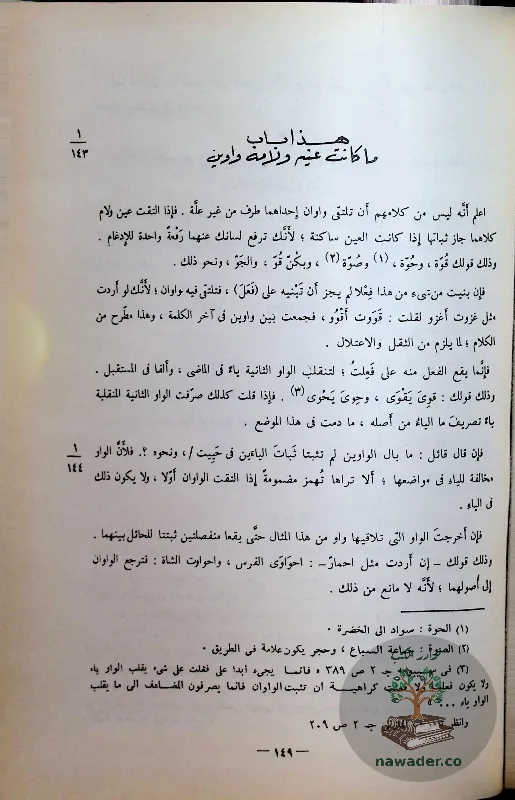 هذا باب
ما كانت عينه ولامه واوين
١
١٤٣
اعلم أَنَّه ليس من كلامهم أَن تلتقى واوان إحداهما طرف من غير علَّة . فإذا التقت عين ولام
كلاهما جاز ثباتها إذا كانت العين ساكنة ؛ لأَنَّك ترفع لسانك عنهما رَفْعةً واحدة للإِدغام .
وذلك قولك قُوّة ، وحُوّة ، (١) وصُوّة (٢) ، وبكُنّ قُوّ ، والجَوّ ، ونحو ذلك .
فإن بنيت من شيء من هذا فِعْلا لم يجز أن تَبْنيه على (فَعَلَ) ، فتلتقى فيه واوان ؛ لأَنَّك لو أَردت
مثل غزوت أَغزو لقلت : قَوَوت أَقْوُو ، فجمعت بين واوين فى آخر الكلمة ، وهذا مطَّرح من
الكلام ؛ لما يلزم من الثقل والاعتلال .
فإنَّما يقع الفعل منه على فَعِلتُ ؛ لتنقلب الواو الثانية ياءً فى الماضى ، وأَلفا فى المستقبل .
وذلك قولك : قوِىَ يَقْوَى ، وحوِىَ يَحْوى (٣) . فإذا قلت كذلك صرّفت الواو الثانية المنقلبة
ياءً تصريفَ ما الياءُ من أَصله ، ما دمت فى هذا الموضع .
فإن قال قائل : ما بال الواوين لم تثبتا ثَباتَ الياءَين فى حَيِيت /، ونحوه ؟. فلأَنَّ الواو
١
١٤٤
مخالفة للياءِ فى مواضعها ؛ أَلا تراها تُهمز مضمومةً إذا التقت الواوان أَوّلا ، ولا يكون ذلك
فى الياءِ .
فإن أَخرجتَ الواو التى تلاقيها واو من هذا المثال حتَّى يقعا منفصلتين ثبتتا للحائل بينهما .
وذلك قولك – إن أَردت مثل احمارّ – : احوَاوَى الفرس ، واحواوت الشاة : فترجع الواوان
إلى أُصولهما ؛ لأَنَّه لا مانع من ذلك .
(١) الحوة : سواد الى الخضرة .
(٢) الصوة : جماعة السباع ، وحجر يكون علامة فى الطريق .
(٣) فى سيبويه ج ٢ ص ٣٨٩ « فانما يجىء أبدا على فعلت على شىء يقلب الواو ياء
ولا يكون فعلت كراهية ان تثبت الواوان فانما يصرفون المضاعف الى ما يقلب
الواو ياء ... »
وانظر ج ٢ ص ٢٠٩
– ١٤٩ –
نوادر الكتب
nawader.co